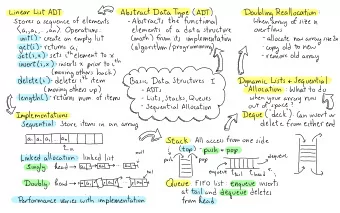 Linear List ADT
Stores a sequence of elements
⟨a₁, a₂, ..., aₙ⟩ Operations
init() create an empty list
get(i) returns aᵢ
set(i, x) sets iᵗʰ element to x
insert(i, x) inserts x prior to iᵗʰ
(moving others back)
delete(i) deletes iᵗʰ item
(moving others up)
length() returns num of items
Implementations
Sequential Store items in an array
a₁ a₂ a₃ ... aₙ
n
Linked allocation: linked list
Singly head → a₁ → a₂ →
Doubly head →
Performance varies with implementation
Abstract Data Type (ADT)
- Abstracts the functional
elements of a data structure
(math) from its implementation
(algorithm / programming)
Basic Data Structures I
- ADTs
- Lists, Stacks, Queues
- Sequential Allocation
Doubling Reallocation
When array of size n
overflows
- allocate new array size 2n
- copy old to new
- remove old array
Dynamic Lists + Sequential
Allocation: What to do
when your array runs
out of space?
Deque ("deck") Can insert or
delete from either end
Stack All access from one side
(top) - push + pop
push pop
top
Queue FIFO list enqueue inserts
at tail and dequeue deletes
from head
enqueue
tail head
dequeue